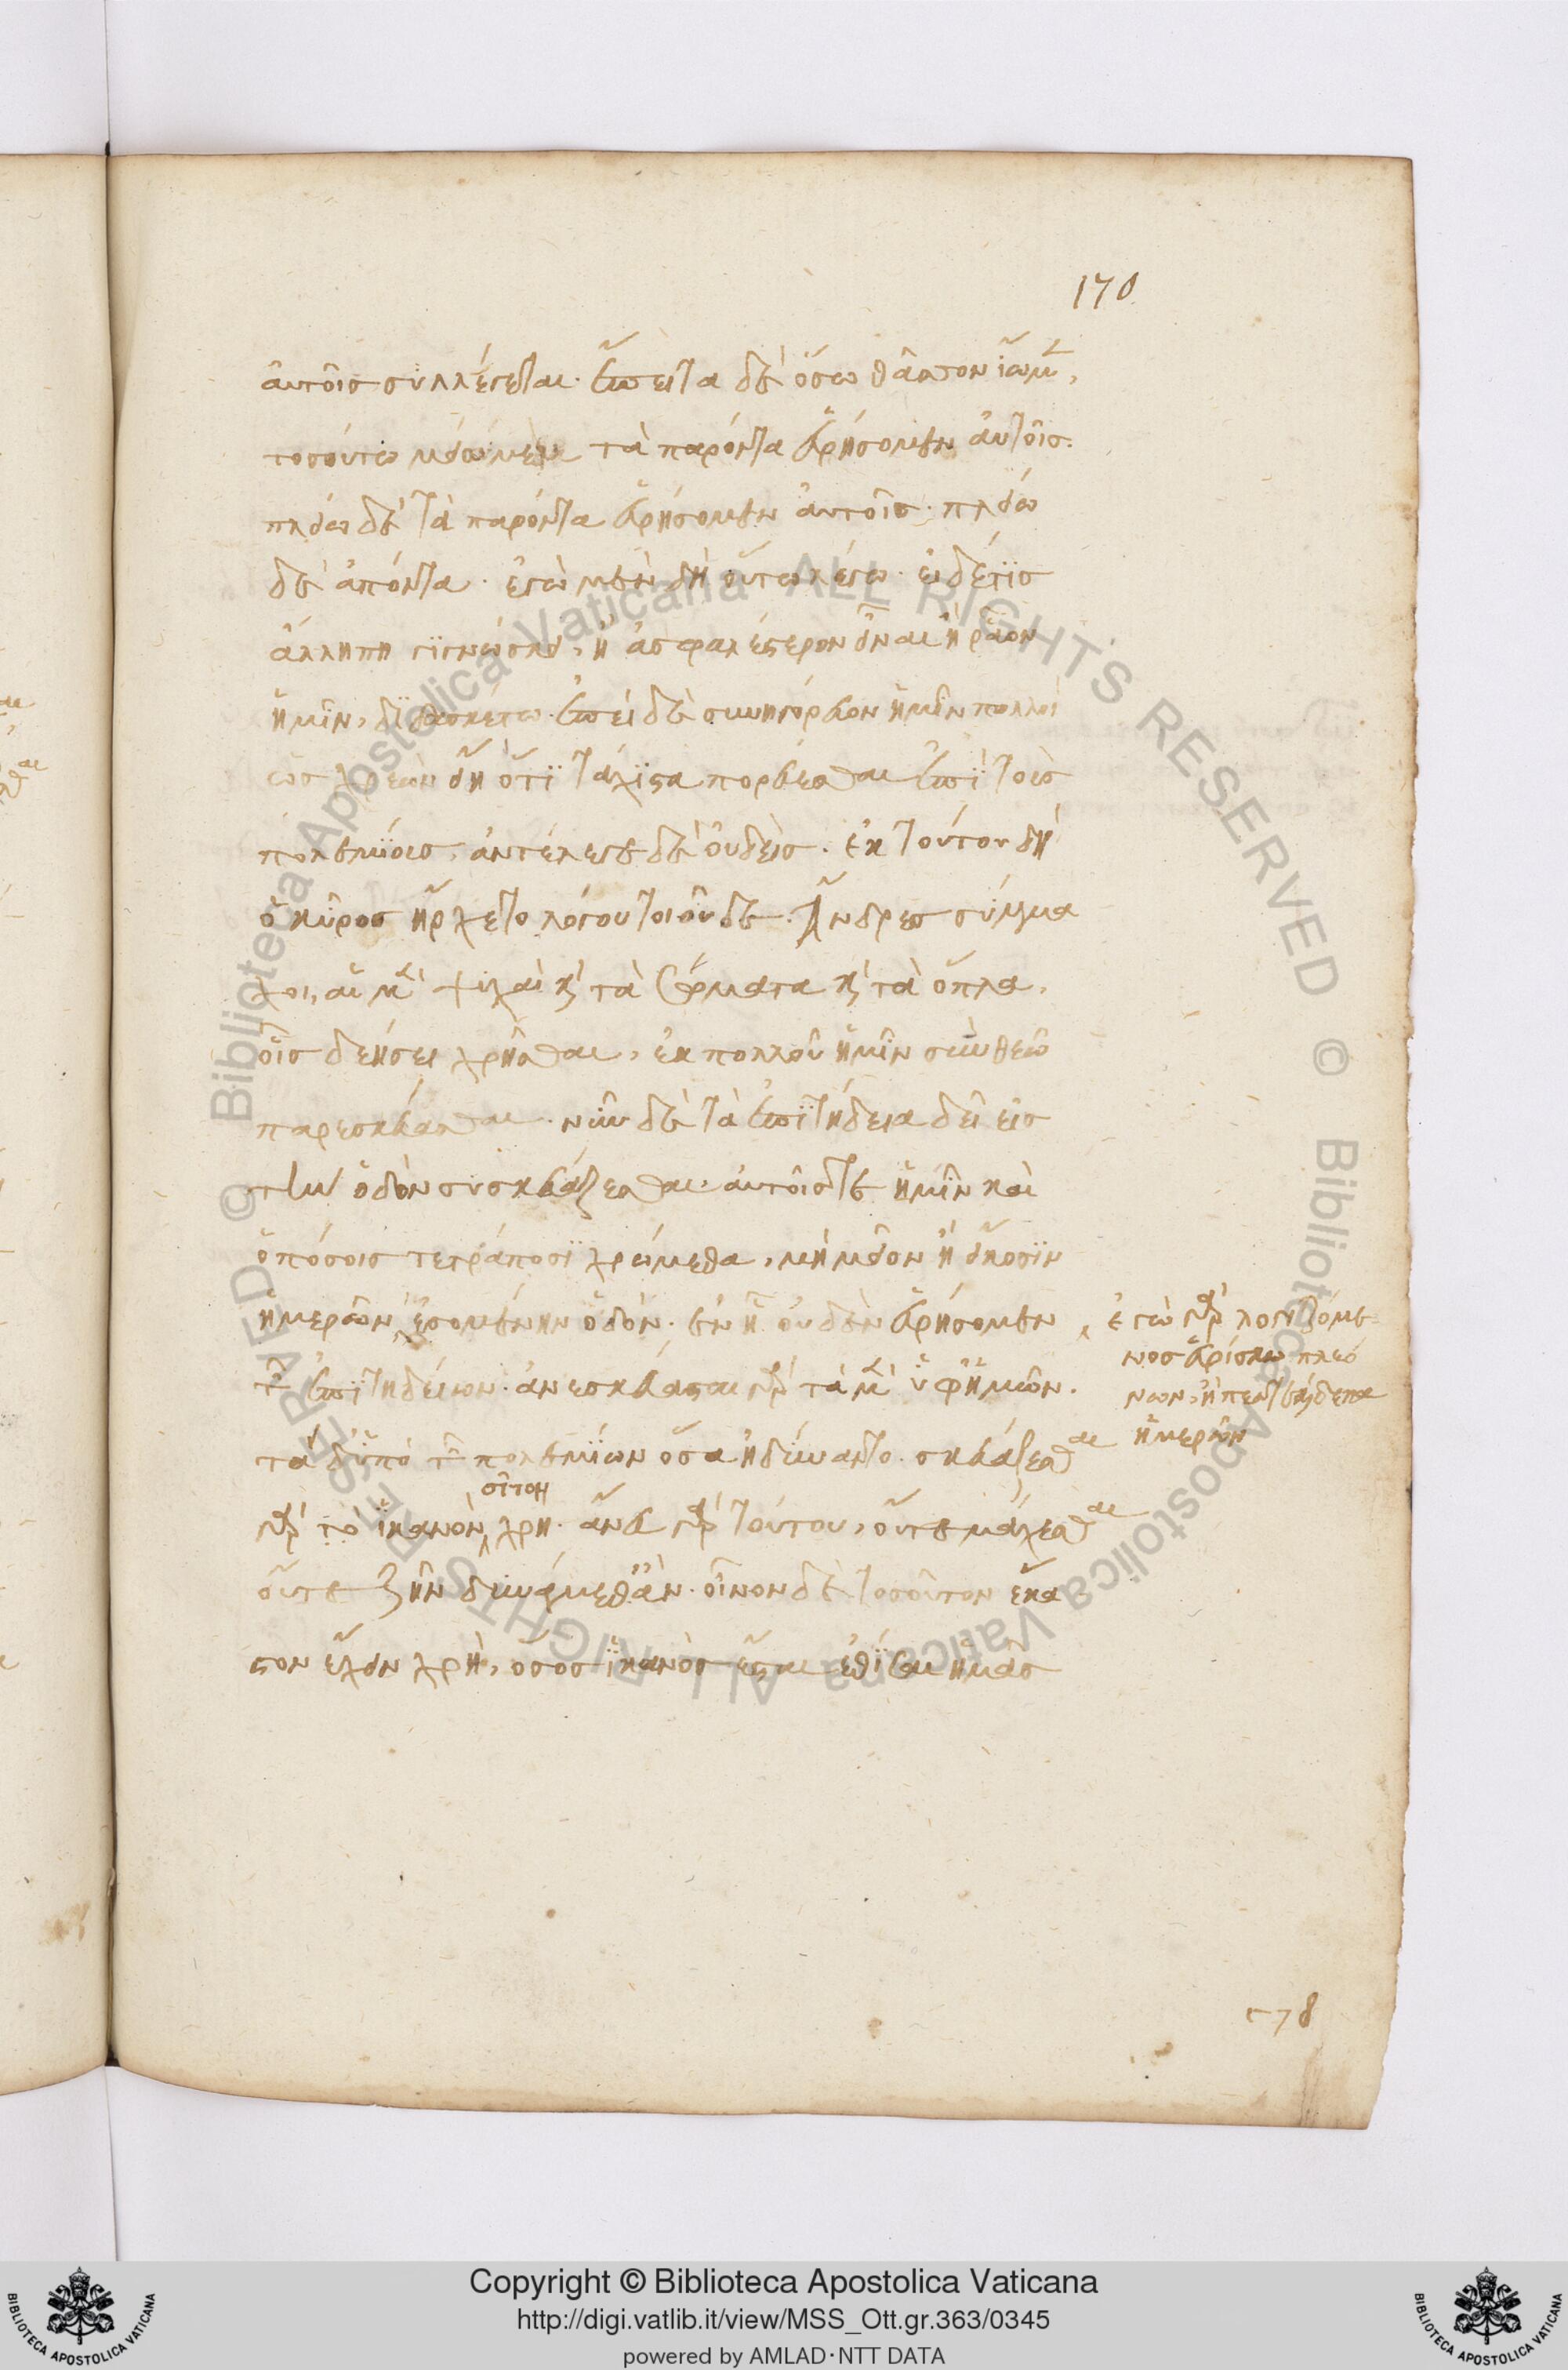 170
αὐτοῖς συλλέγεται. ἔπειτα δὲ ὅσῳ θᾶττον ἴωμεν,
τοσούτῳ μείω μὲν τὰ παρόντα εὑρήσομεν αὐτοῖς.
πλείω δὲ τὰ παρόντα εὑρήσομεν αὐτοῖς. πλείω
δὲ ἀπόντα. ἐγὼ μὲν δὴ οὕτω λέγω. εἰ δέ τις
ἄλλῃ πη γιγνώσκει, ἢ ἀσφαλέστερον εἶναι ἢ ῥᾷον
ἡμῖν, διδασκέτω. ἐπεὶ δὲ συνηγόρευον ἡμῖν πολλοὶ
ὡς χρεὼν εἴη ὅτι τάχιστα πορεύεσθαι ἐπὶ τοὺς
πολεμίους, ἀντέλεγε δὲ οὐδεὶς. ἐκ τούτου δὴ
ὁ κῦρος ἤρχετο λόγου τοιοῦδε. Ἄνδρες σύμμα
χοι, αἱ μὲν ψυχαὶ καὶ τὰ σώματα καὶ τὰ ὅπλα,
οἷς δεήσει χρῆσθαι, ἐκ πολλοῦ ἡμῖν σὺν θεῷ
παρεσκεύασται. νῦν δὲ τὰ ἐπιτήδεια δεῖ εἰς
τὴν ὁδὸν συσκευάζεσθαι. αὐτοῖς τε ἡμῖν καὶ
ὁπόσοις τετράποσι χρώμεθα, μὴ μεῖον ἢ εἴκοσιν
ἡμερῶν, ἐσομένην ὁδὸν. ἐν ᾗ οὐδὲν εὑρήσομεν
τῶν ἐπιτηδείων. ἀνεσκεύασται γὰρ τὰ μὲν ὑφ' ἡμῶν.
τὰ δ' ὑπὸ τῶν πολεμίων ὅσα ἠδύναντο. σκευάζεσθαι
σῖτον
γὰρ τὸ ἱκανὸν χρή. ἄνευ γὰρ τούτου, οὔτε μάχεσθαι
οὔτε ζῆν δυναίμεθ' ἄν. οἶνον δὲ τοσοῦτον ἕκα
στον ἔχειν χρὴ, ὅσος ἱκανὸς ἔσται ἐθίσαι ἡμᾶς
ἐγὼ γὰρ λογιζόμε=
νος εὑρίσκω πλεό
νων, ἢ πεντεκαίδεκα
ἡμερῶν
Copyright © Biblioteca Apostolica Vaticana
http://digi.vatlib.it/view/MSS_Ott.gr.363/0345
powered by AMLAD·NTT DATA